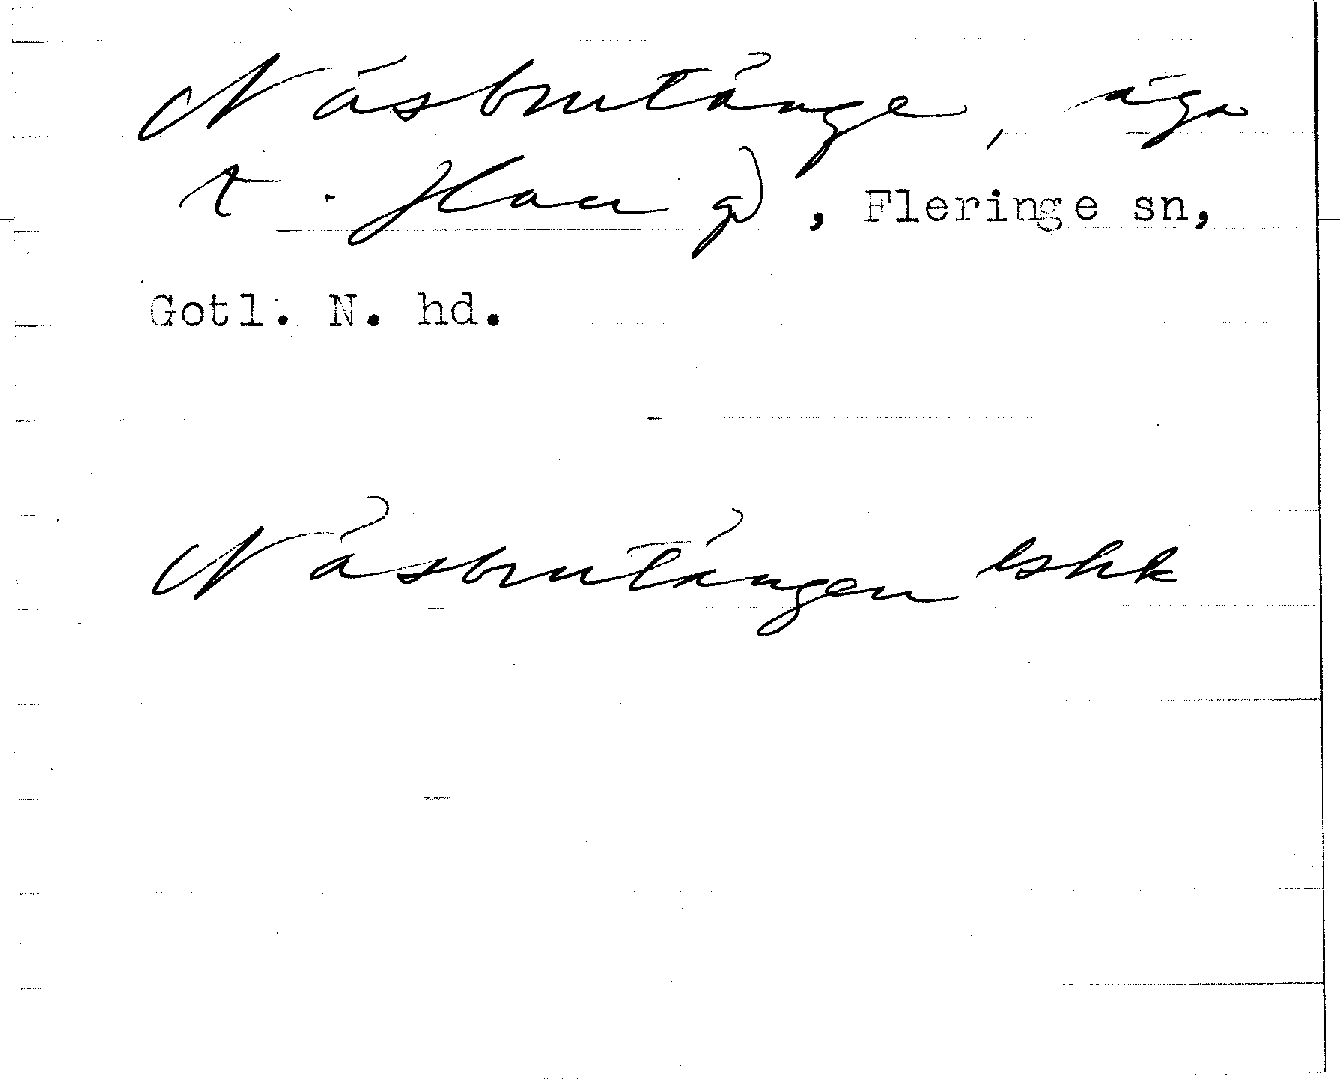 Näsbrutänge, äga
t. Hau gd, Fleringe sn,
Gotl. N. hd.
Näsbrutängen lshk